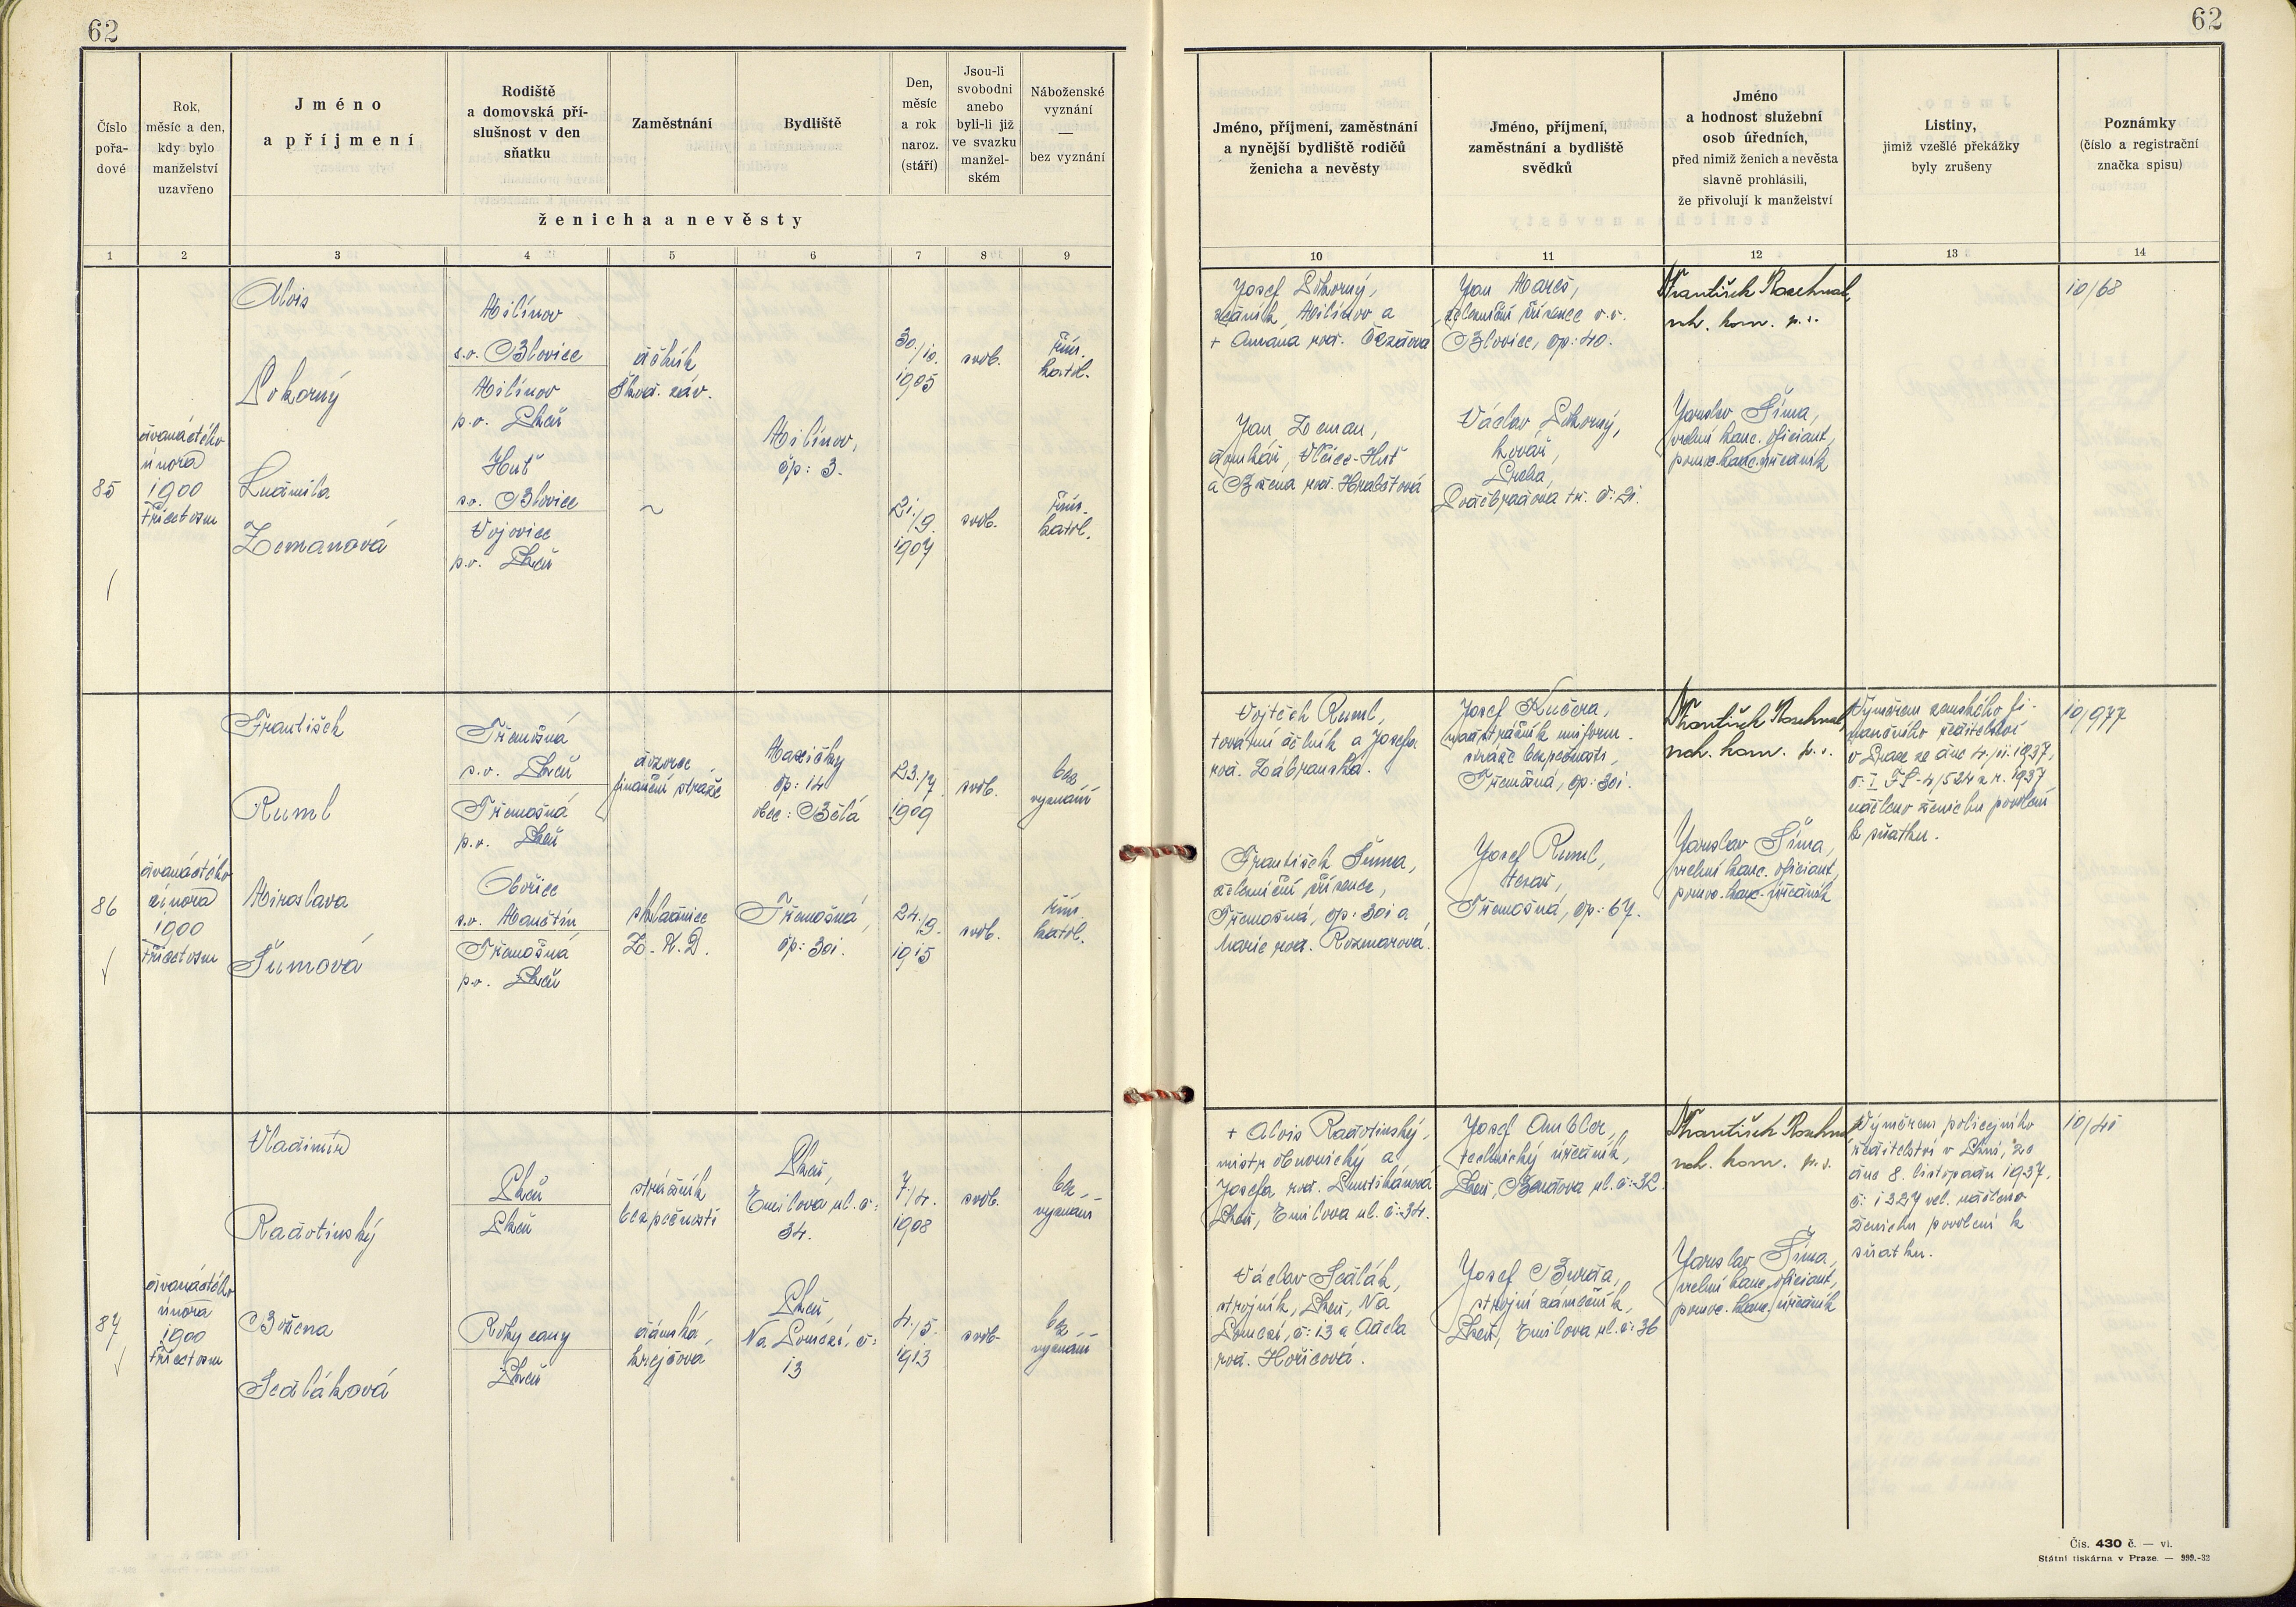 62
62
Číslo
pořa-
dové
Rok,
měsíc a den,
kdy bylo
manželství
uzavřeno
Jméno
a příjmení
Rodiště
a domovská pří-
slušnost v den
sňatku
Zaměstnání
Bydliště
Den,
měsíc
a rok
naroz.
(stáří)
Jsou-li
svobodni
anebo
byli-li již
ve svazku
manžel-
ském
Náboženské
vyznání
—
bez vyznání
ženicha a nevěsty
Jméno, příjmení, zaměstnání
a nynější bydliště rodičů
ženicha a nevěsty
Jméno, příjmení,
zaměstnání a bydliště
svědků
Jméno
a hodnost služební
osob úředních,
před nimiž ženich a nevěsta
slavně prohlásili,
že přivolují k manželství
Listiny,
jimiž vzešlé překážky
byly zrušeny
Poznámky
(číslo a registrační
značka spisu)
1 2 3 4 5 6 7 8 9 10 11 12 13 14
85
dvanáctého
února
1900
třicetosm
Alois
Pokorný
Ludmila
Zemanová
Milínov
s.o. Blovice
Milínov
p.o. Plzeň
Huť
s.o. Blovice
Vojovice
p.o. Plzeň
dělník
Škod. záv.
~
Milínov,
čp: 3.
30./10.
1905
21./9.
1907
svob.
svob.
řím.
katol.
řím.
katol.
Josef Pokorný,
zedník, Milínov a
Jan Zeman,
domkář, Vlčice-Huť
a Božena rod. Hrabětová
Jan Mareš,
železniční zřízenec v.v.
Blovice, čp: 40.
Václav Pokorný,
kovář,
Praha,
Poděbradova tř. č: 21.
František
rch. kom. p. s.
Jaroslav Šíma,
vrchní kanc. oficiant,
pomoc. kanc. úředník
10/68
86
dvanáctého
února
1900
třicetosm
František
Ruml
Miroslava
Šumová
Třemošná
s.o. Plzeň
Třemošná
p.o. Plzeň
Obořice
s.o. Manětín
Třemošná
p.o. Plzeň
dozorce
finanční stráže
skladnice
Z. N. D.
Maxičky
čp: 14
obec: Bělá
Třemošná,
čp: 301.
23./7.
1909
24./9.
1915
svob.
svob.
bez
vyznání
řím.
katol.
Vojtěch Ruml,
tovární dělník a Josefa
rod. Zábranská.
František Šuma,
železniční zřízenec,
Třemošná, čp: 301 a
Marie rod. Rozmarová.
Josef Kučera,
nadstrážník uniform.
stráže bezpečnosti,
Třemošná, čp: 301.
Josef Ruml,
tesař,
Třemošná, čp: 67.
František
rch. kom. p. s.
Jaroslav Šíma,
vrchní kanc. oficiant,
pomoc. kanc. úředník
Výměrem zemského fi-
nančního ředitelství
v Praze ze dne 4. pi. 1937,
č: I FS-4/524 z r. 1937
uděleno ženichu povolení
k sňatku.
10/977
87
dvanáctého
února
1900
třicetosm
Vladimír
Radotínský
Božena
Sedláková
Plzeň
Plzeň
Rokycany
Plzeň
strážník
bezpečnosti
dámská
krejčová
Plzeň,
Emilova ul. č:
34.
Plzeň,
Na Pomezí, č:
13
7/4.
1908
4./5.
1913
svob.
svob.
bez
vyznání
bez
vyznání
+ Alois Radotínský,
mistr obuvnický a
Josefa rod.
Plzeň, Emilova ul. č: 34.
Václav Sedlák,
strojník, Plzeň, Na
Pomezí, č: 13 a Adéla
rod. Hořicová.
Josef Ambler,
technický úředník,
Plzeň, Bendova ul. č: 32.
Josef Burda,
strojní zámečník,
Plzeň, Emilova ul. č: 36
František
rch. kom. p. s.
Jaroslav Šíma,
vrchní kanc. oficiant,
pomoc. kanc. úředník
Výměrem policejního
ředitelství v Plzni, ze
dne 8. listopadu 1937,
č: 1327 uděleno
ženichu povolení k
sňatku.
Čís. 430 č. — vi.
Státní tiskárna v Praze. — 999.-32